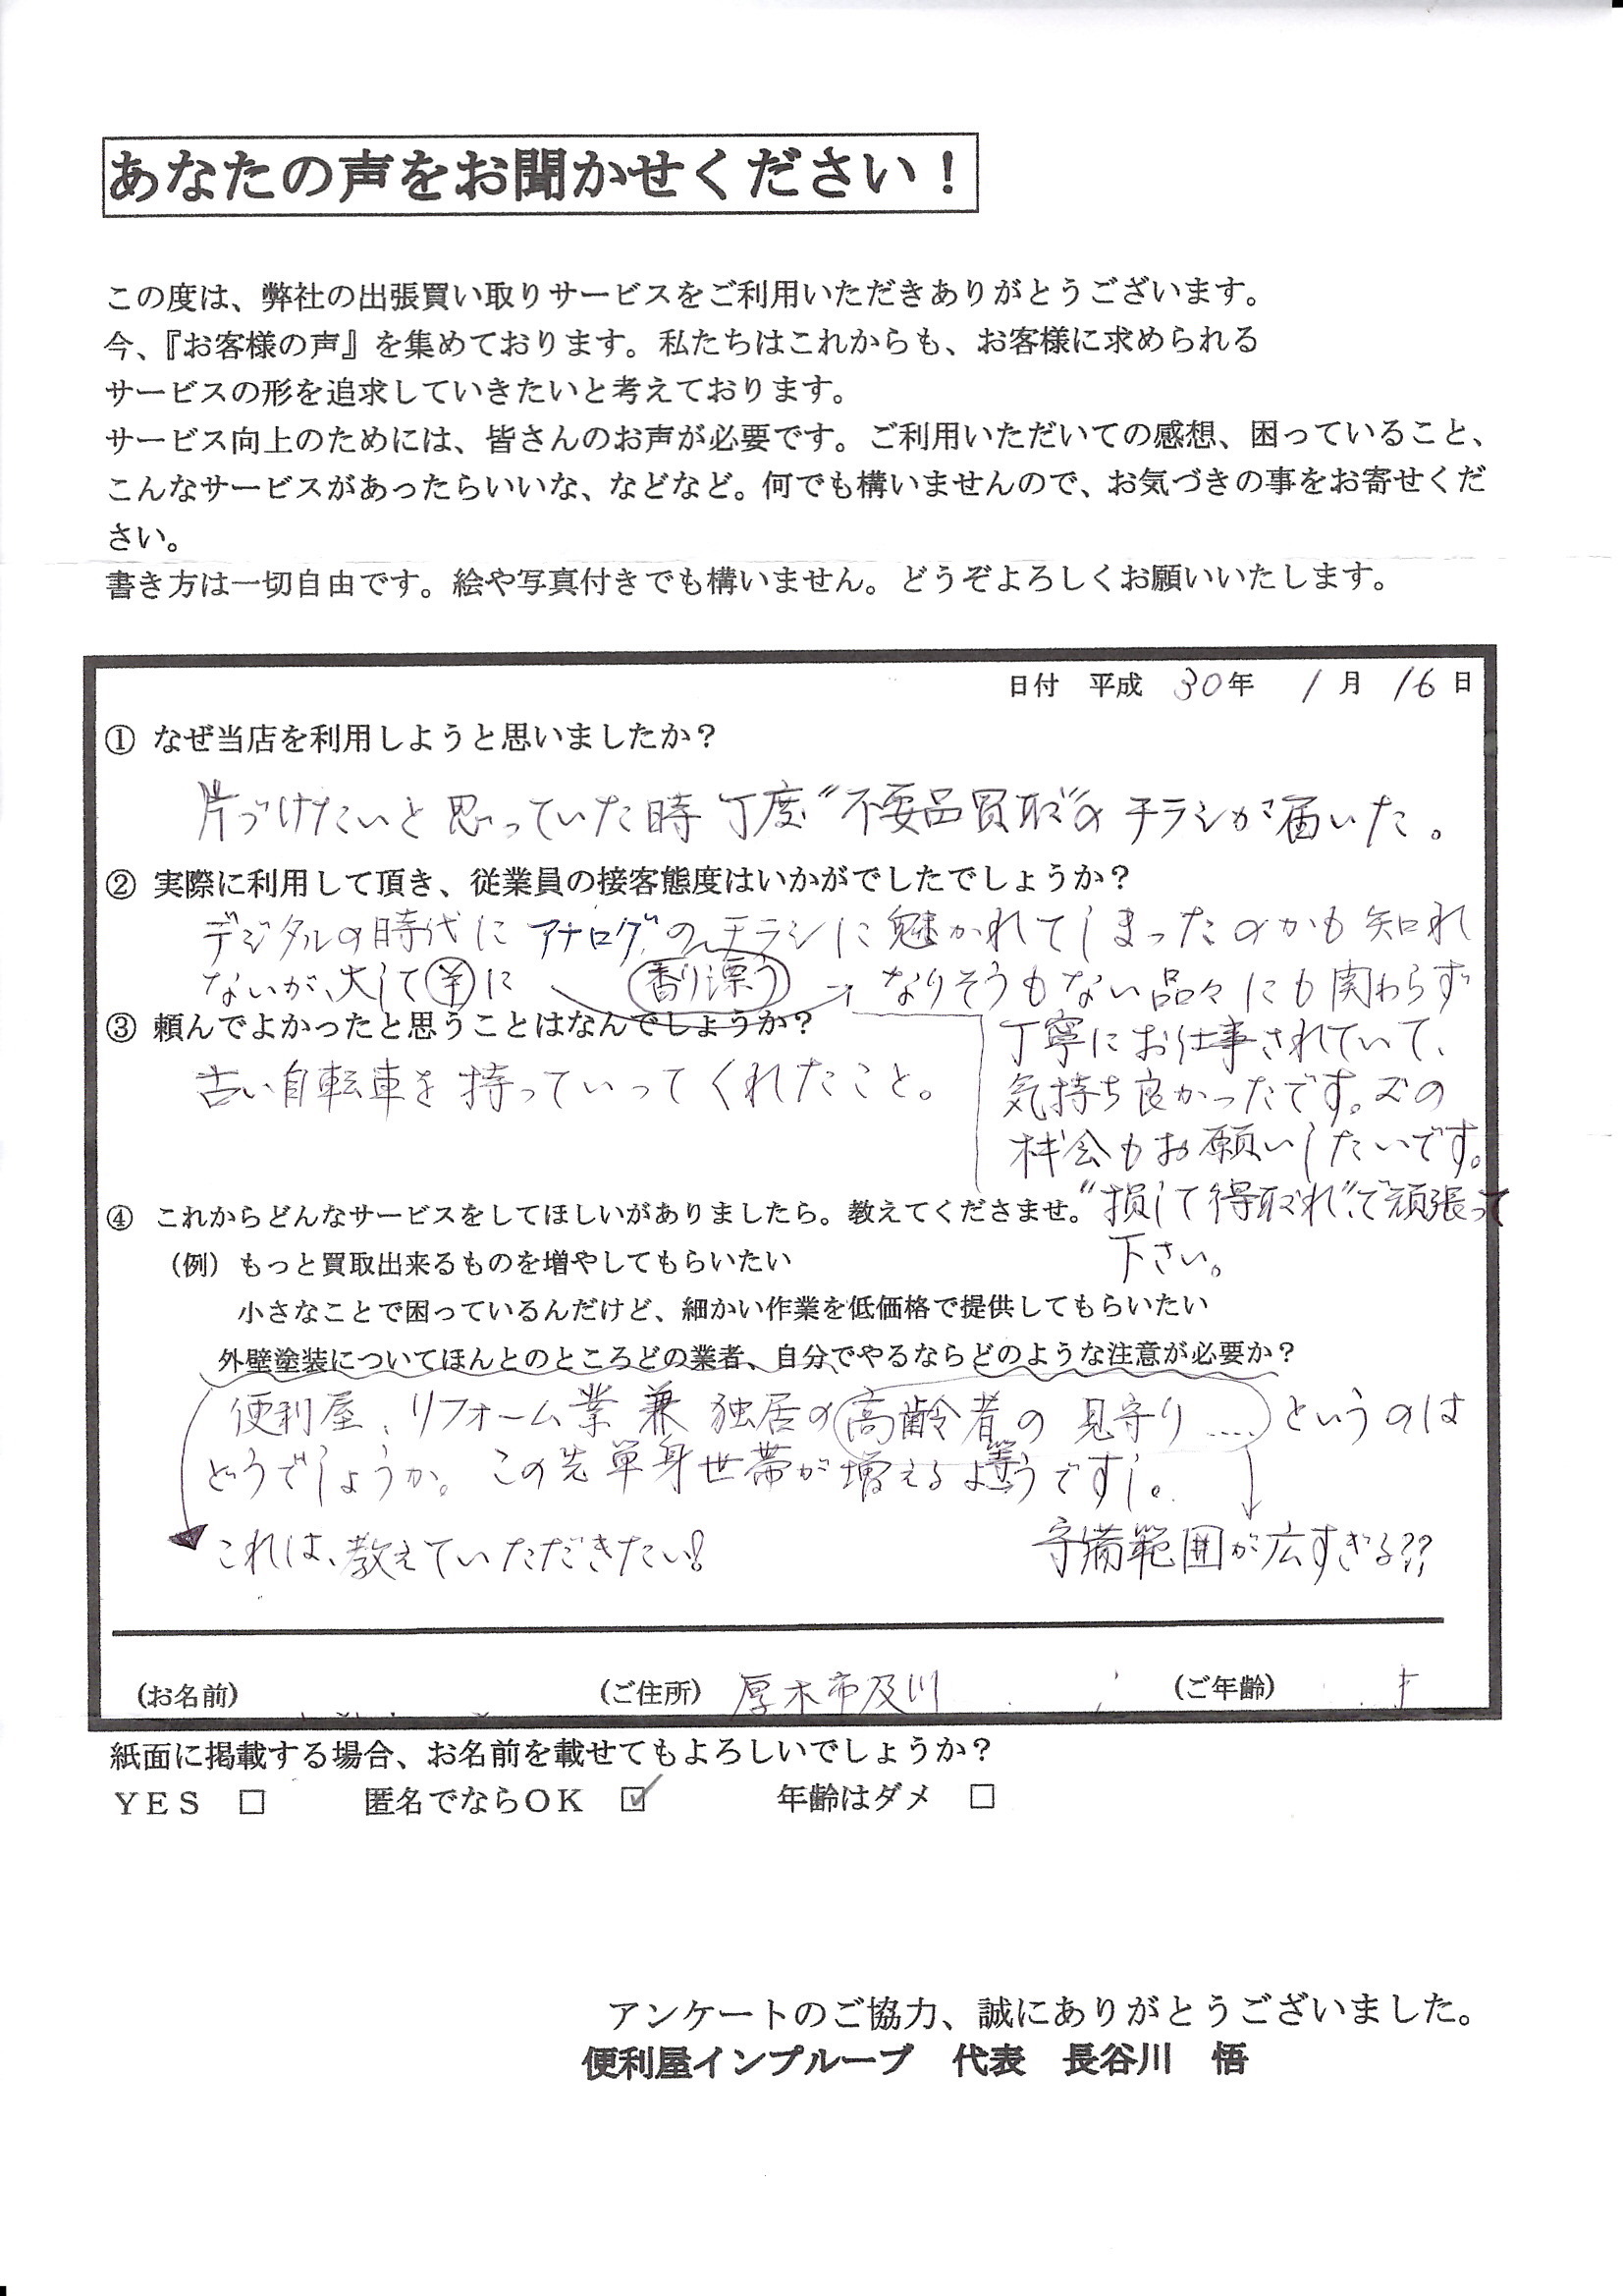 あなたの声をお聞かせください！
この度は、弊社の出張買い取りサービスをご利用いただきありがとうございます。
今、『お客様の声』を集めております。私たちはこれからも、お客様に求められる
サービスの形を追求していきたいと考えております。
サービス向上のためには、皆さんのお声が必要です。ご利用いただいての感想、困っていること、
こんなサービスがあったらいいな、などなど。何でも構いませんので、お気づきの事をお寄せくだ
さい。
書き方は一切自由です。絵や写真付きでも構いません。どうぞよろしくお願いいたします。
日付 平成 30年 1月 16日
① なぜ当店を利用しようと思いましたか？
片づけたいと思っていた時丁度〝不要品買取〞のチラシが届いた。
② 実際に利用して頂き、従業員の接客態度はいかがでしたでしょうか？
デジタルの時代にアナログのチラシに魅かれてしまったのかも知れ
香り漂う
ないが、大して¥に なりそうもない品々にも関わらず
丁寧にお仕事されていて、
気持ち良かったです。又の
機会もお願いしたいです。
〝損して得取れ〞で頑張って
下さい。
③ 頼んでよかったと思うことはなんでしょうか？
古い自転車を持っていってくれたこと。
④ これからどんなサービスをしてほしいがありましたら。教えてくださませ。
（例）もっと買取出来るものを増やしてもらいたい
小さなことで困っているんだけど、細かい作業を低価格で提供してもらいたい
外壁塗装についてほんとのところどの業者、自分でやるならどのような注意が必要か？
便利屋、リフォーム業兼独居の高齢者の見守り……というのは
どうでしょうか。この先単身世帯が増えるようですし。
これは、教えていただきたい！
守備範囲が広すぎる？？
（お名前） （ご住所）厚木市及川 （ご年齢）
紙面に掲載する場合、お名前を載せてもよろしいでしょうか？
ＹＥＳ □ 匿名でならＯＫ ☑ 年齢はダメ □
アンケートのご協力、誠にありがとうございました。
便利屋インプループ 代表 長谷川 悟